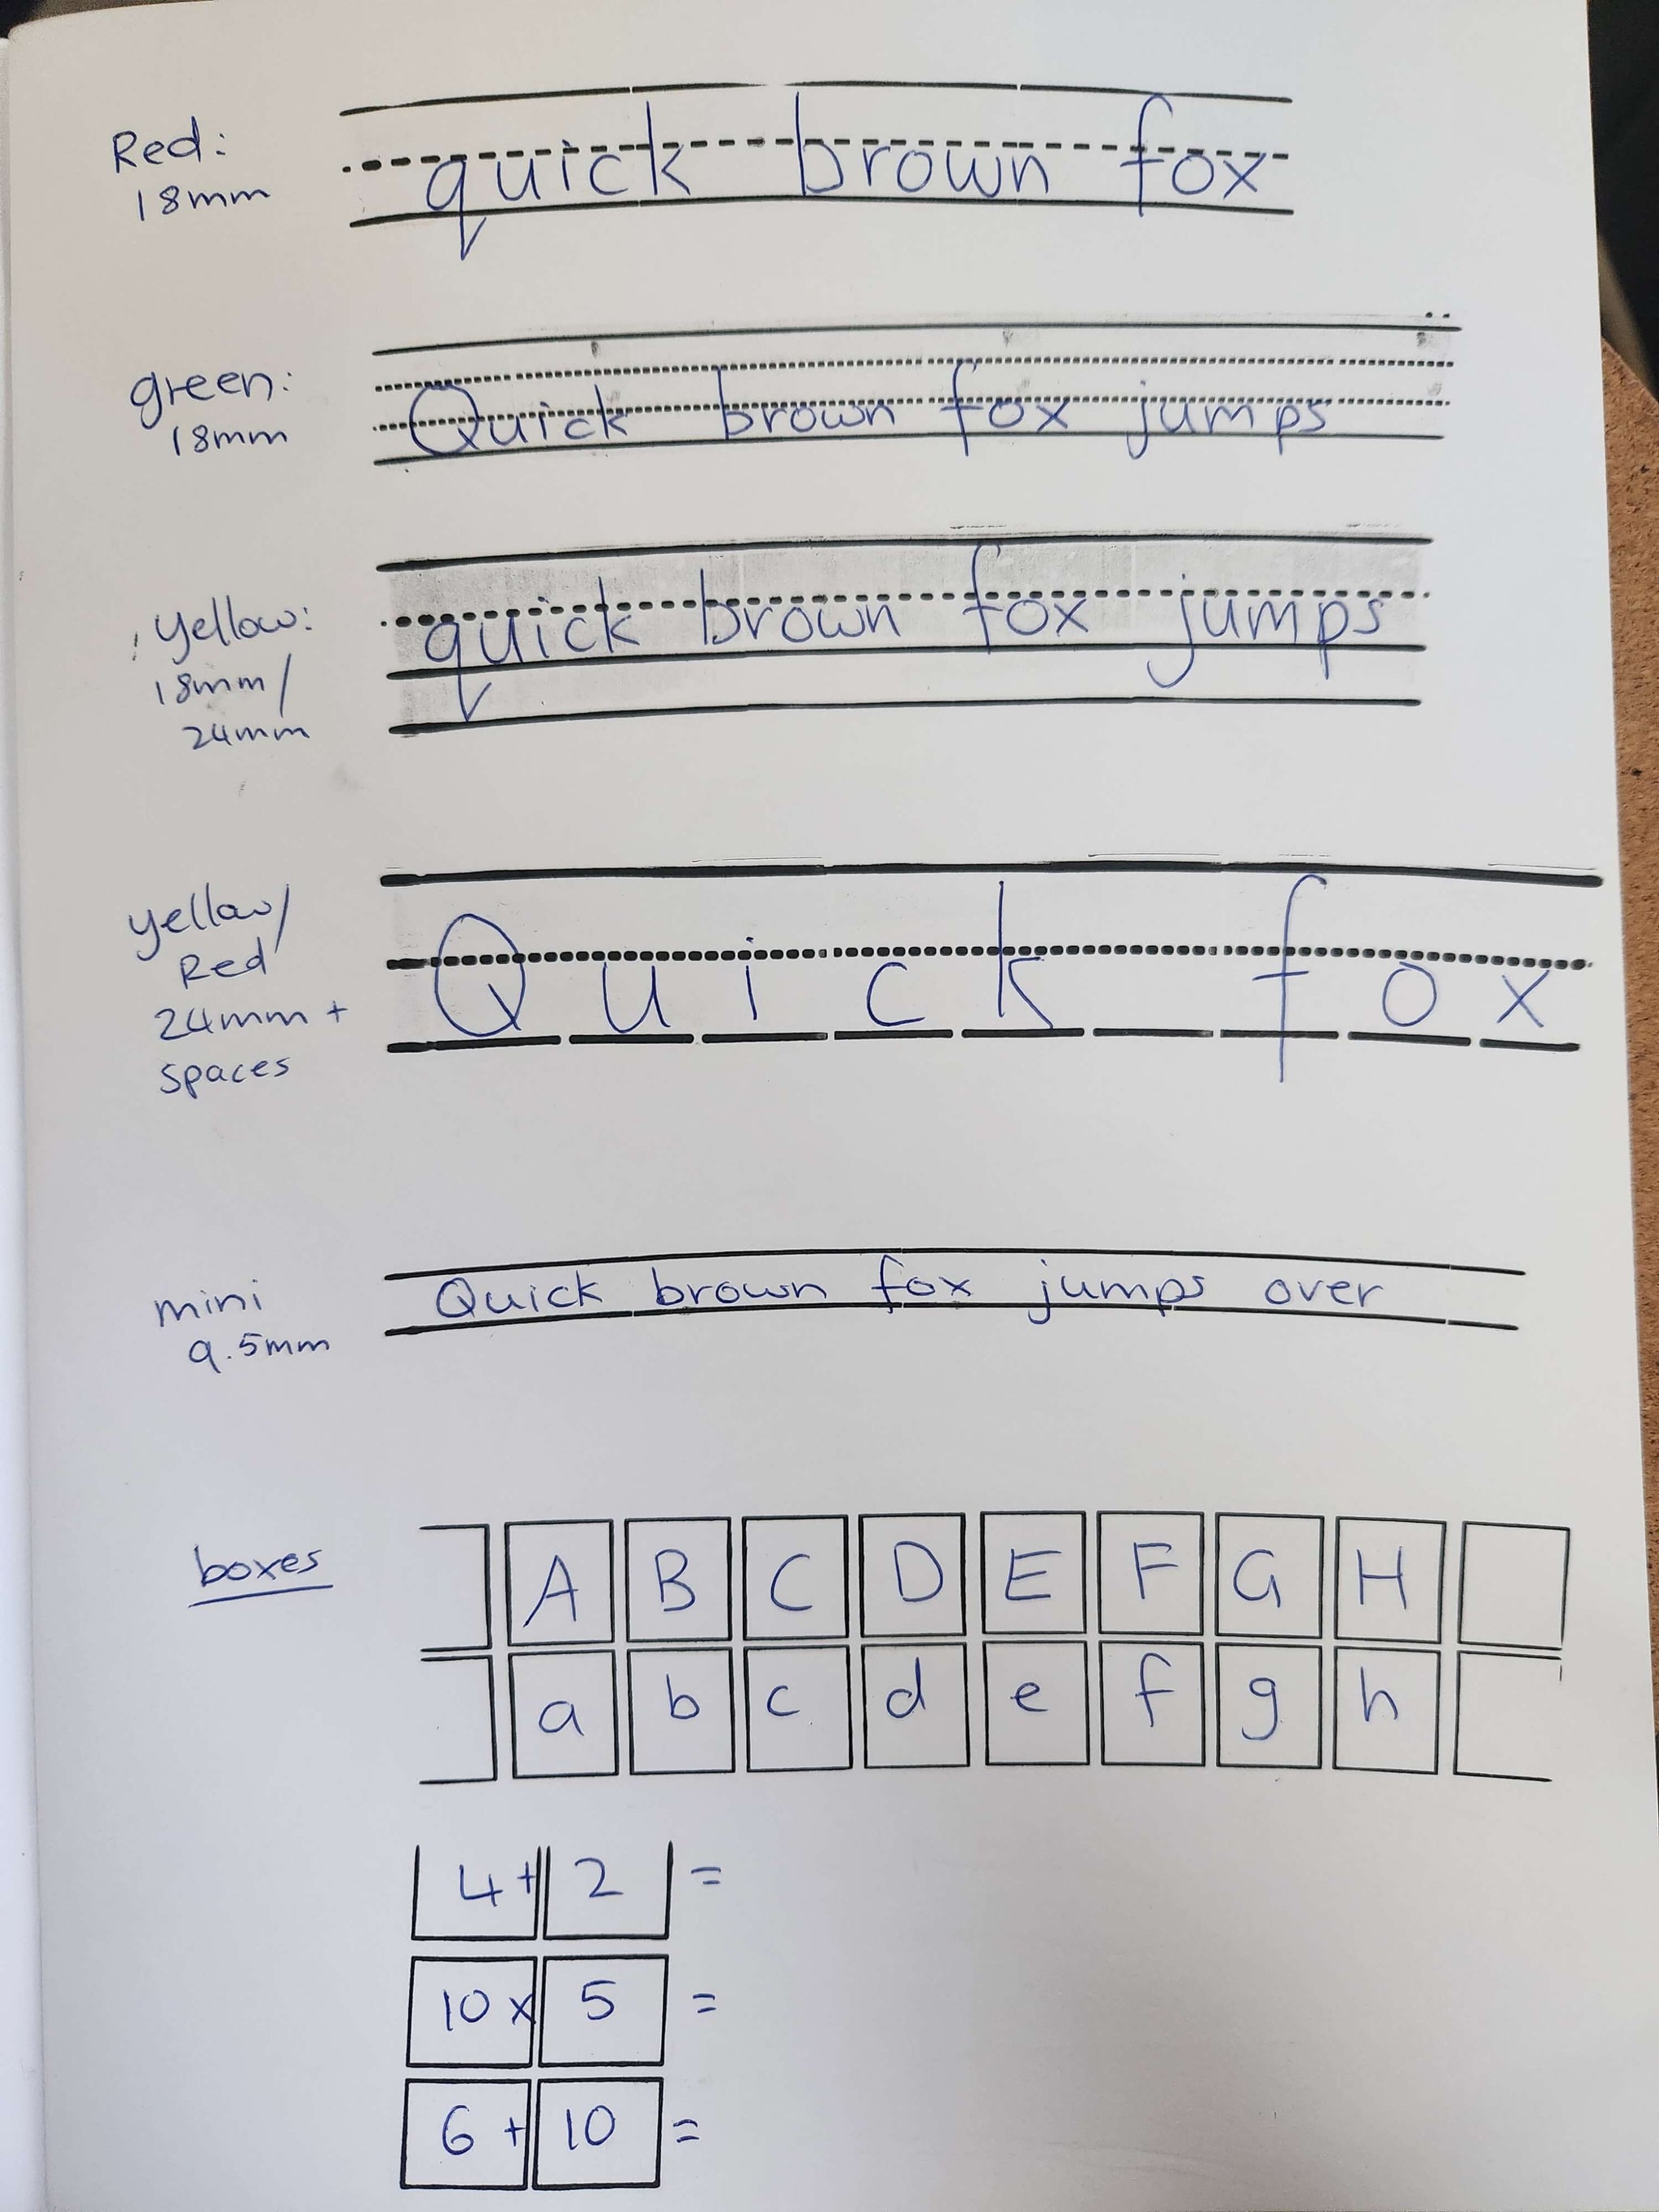 Red:
18mm
quick brown fox
green:
18mm
Quick brown fox jumps
yellow:
18mm/
24mm
quick brown fox jumps
yellow/
Red
24mm +
spaces
Quick fox
mini
9.5mm
Quick brown fox jumps over
boxes
A B C D E F G H
a b c d e f g h
4 + 2 =
10 x 5 =
6 + 10 =